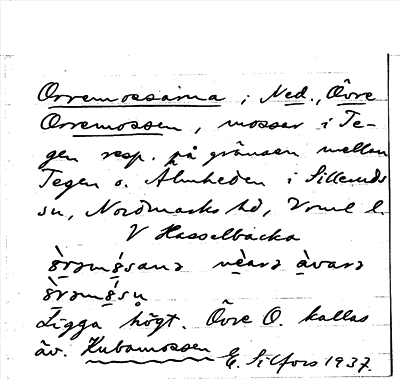 Orremossarna, Ned., Övre
Orremossen, mossar i Te-
gen resp. på gränsen mellan
Tegen o. Älmheden i Silleruds
sn, Nordmarks hd, Vrml l.
V Hasselbacka
nèara àvara
Ligga högt. Övre O. kallas
äv. Kubamossen
E. Silfors 1937.